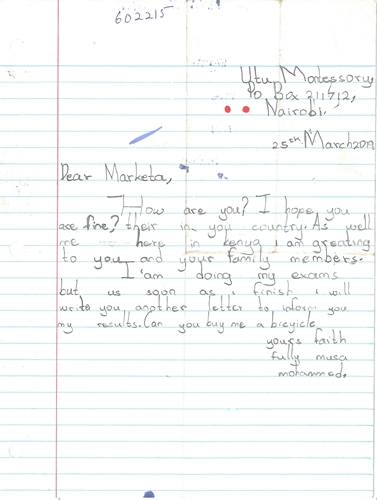 602215
Utu Montessory,
Po Box 211712,
Nairobi.
25th March 2019
Dear Marketa,
How are you? I hope you
are fine? their in you country. As well
me here in kenya i am greating
to you and your family members.
I am doing my exams
but us soon as i finish i will
write you another letter to inform you
my results. Can you buy me a bicyicle
yours faith
fully musa
mohammed.